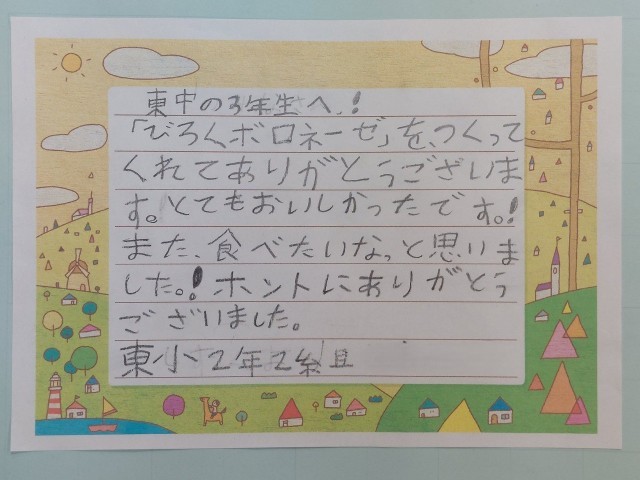 東中の3年生へ!
「びろくボロネーゼ」を、つくって
くれてありがとうございま
す。とてもおいしかったです。!
また、食べたいなっと思いま
した。!ホントにありがとう
ございました。
東小2年2組